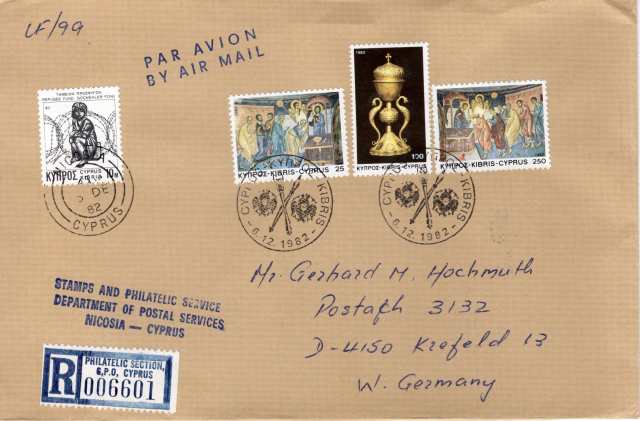 LF/99
PAR AVION
BY AIR MAIL
1982
REFUGEE FUND
ΚΥΠΡΟΣ CYPRUS KIBRIS 10M
ΚΥΠΡΟΣ-KIBRIS-CYPRUS 25
ΚΥΠΡΟΣ-KIBRIS-CYPRUS 100
ΚΥΠΡΟΣ-KIBRIS-CYPRUS 250
DE
82
CYPRUS
KIBRIS
-6.12.1982-
KIBRIS
-6.12.1982-
STAMPS AND PHILATELIC SERVICE
DEPARTMENT OF POSTAL SERVICES
NICOSIA — CYPRUS
R
PHILATELIC SECTION,
G.P.O, CYPRUS
006601
Mr. Gerhard M. Hochmuth
Postafh 3132
D-4150 Krefeld 13
W. Germany